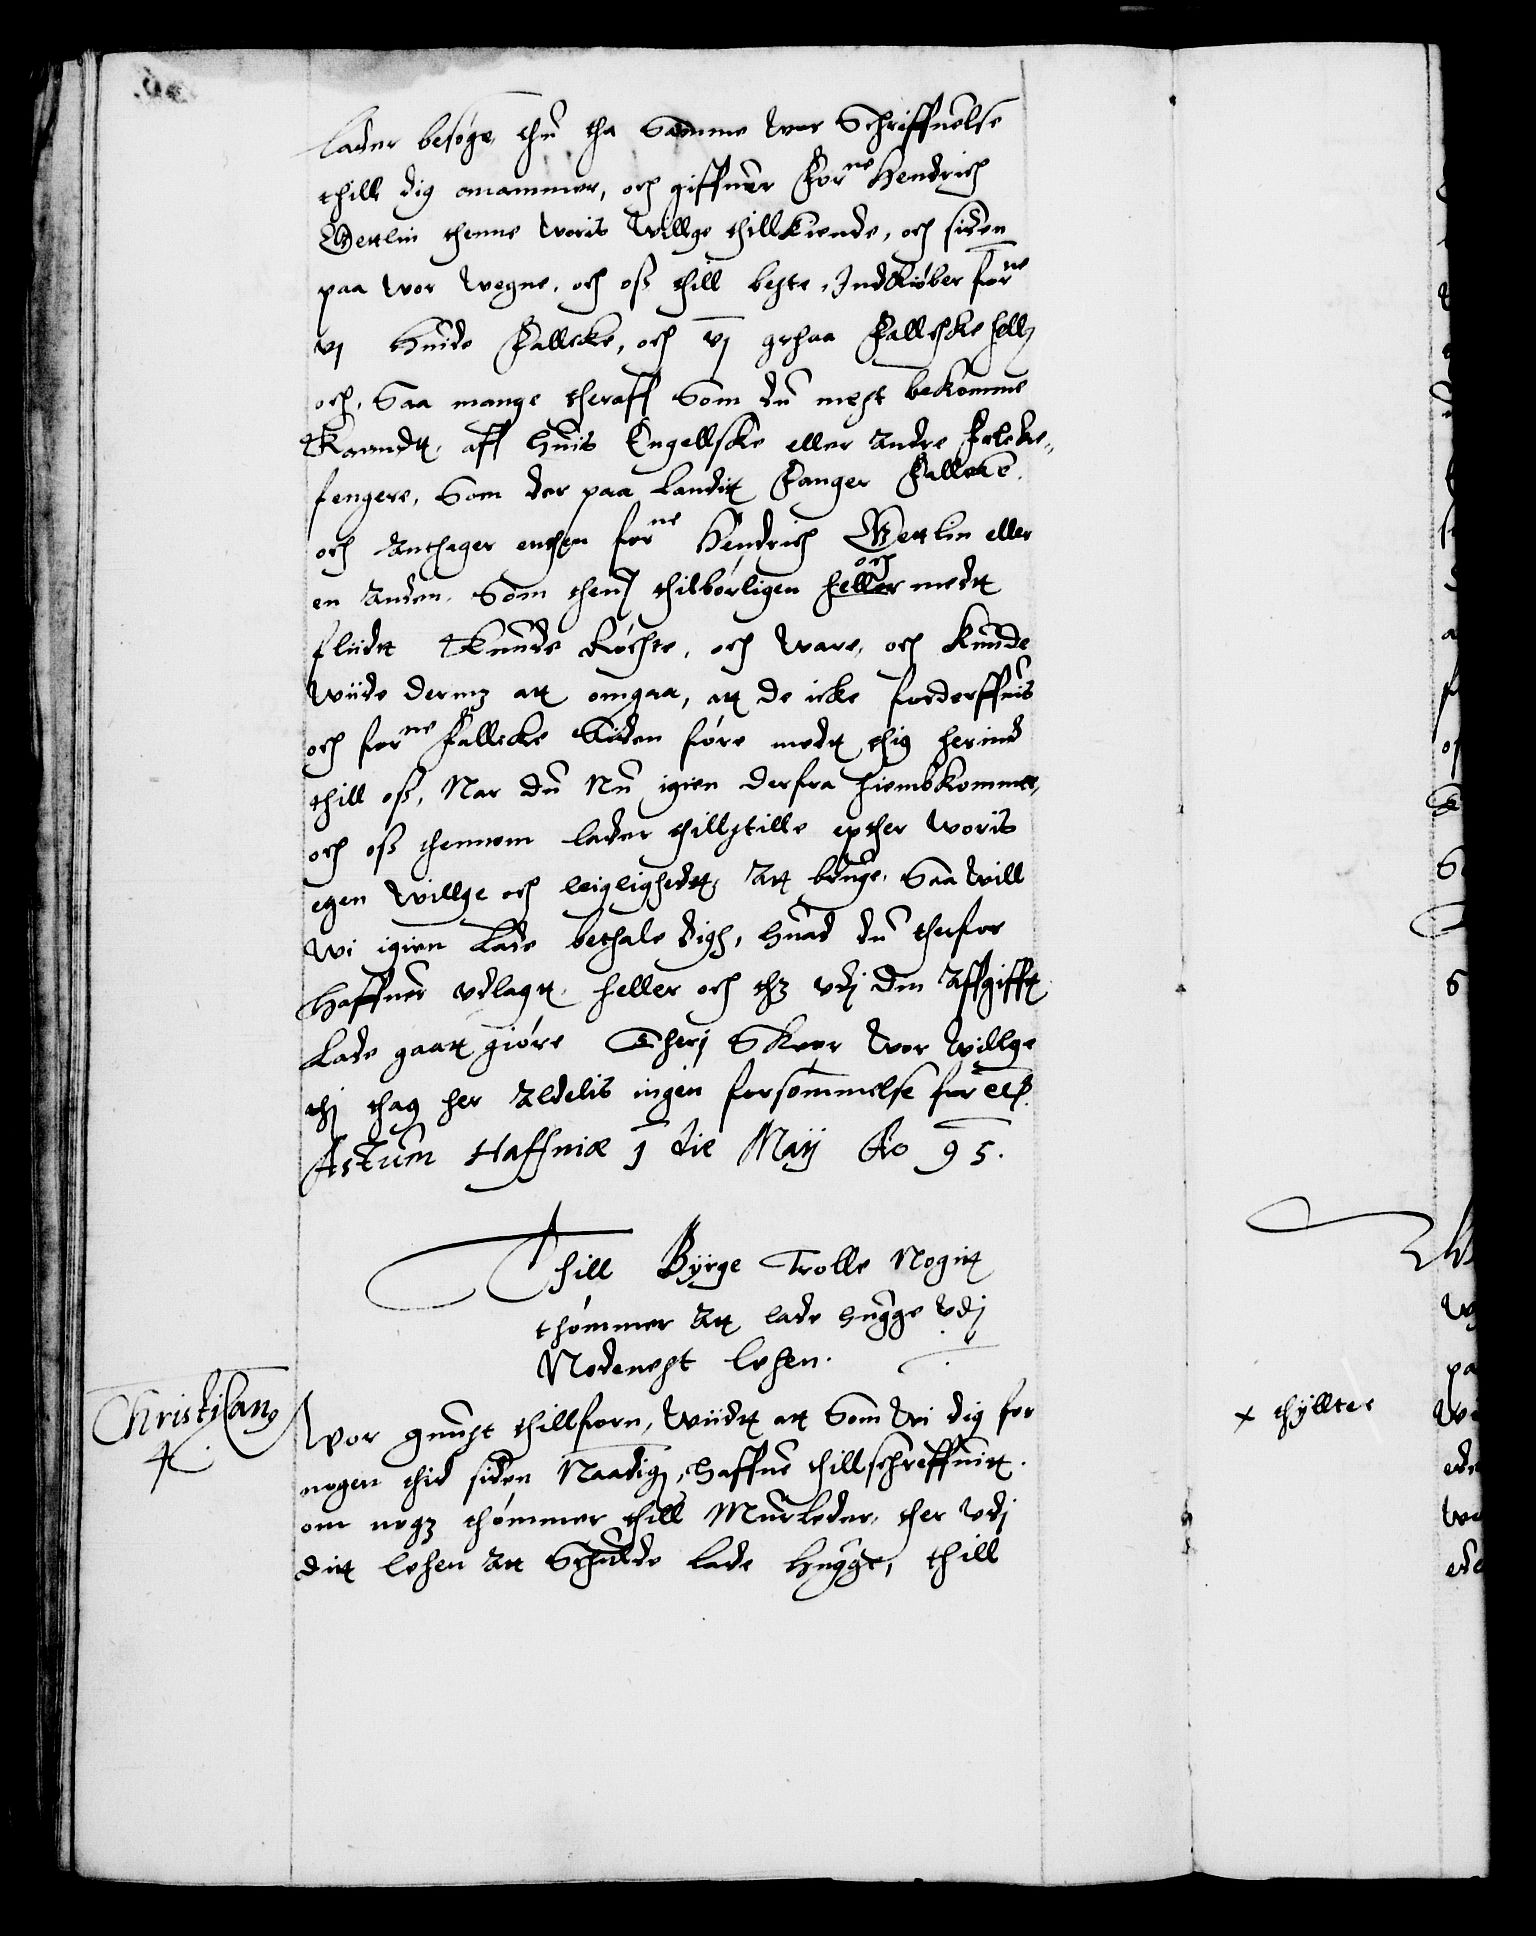 lader besøge, thu tha Samme wor Schriffuelse
thill dig anammer, och giffuer For^ne Hendrich
Wettlin thenne woris willge thillkiende, och siden
paa wor wegne, och oß thill beste, Indkiøber for^ne
vj huide Fallcke, och vj grhaa Fallcke heller
och, Saa mange theraff Som du mest bekomme
kanndt, aff huis Engellske eller andre falcke,,
fengere, Som der paa landit Fanger Fallcke.
och anthager enthen for^ne Hendrich Wettlin eller
en anden, Som thenj thilbørligen heller och medt
fliidt kunde Røchte, och ware, och kunde
wiide dermz att omgaa, att de icke forderffuis
och for^ne Fallcke Siden føre medt thig herind
thill oß, Nar du Nu igien derfra hiembkommer,
och oß thennom lader thillstille epther woris
egen willge och leiglighedt, att bruge, Saa will
wi igien lade bethale digh, huad du therfor
Haffuer vdlagt, heller och thz vdj din affgifft
lade gaatt giøre Therj Skeer wor willge
thj thag her aldelis ingen forsømmelse for etc.
Actum Haffniæ 1 die Maij Ao 95.
Thill Byrge Trolle Nogitt
thømmer att lade hugge vdj
Nedenest lehen.
Christian
4
Wor gunst thillforn, wiidt att Som wi dig for
nogen thid siden Naadig, haffue thillschreffuitt
om nogz thømmer thill Murleder, ther vdj
ditt lehen att Schulde lade hugge, thill
x thyllter